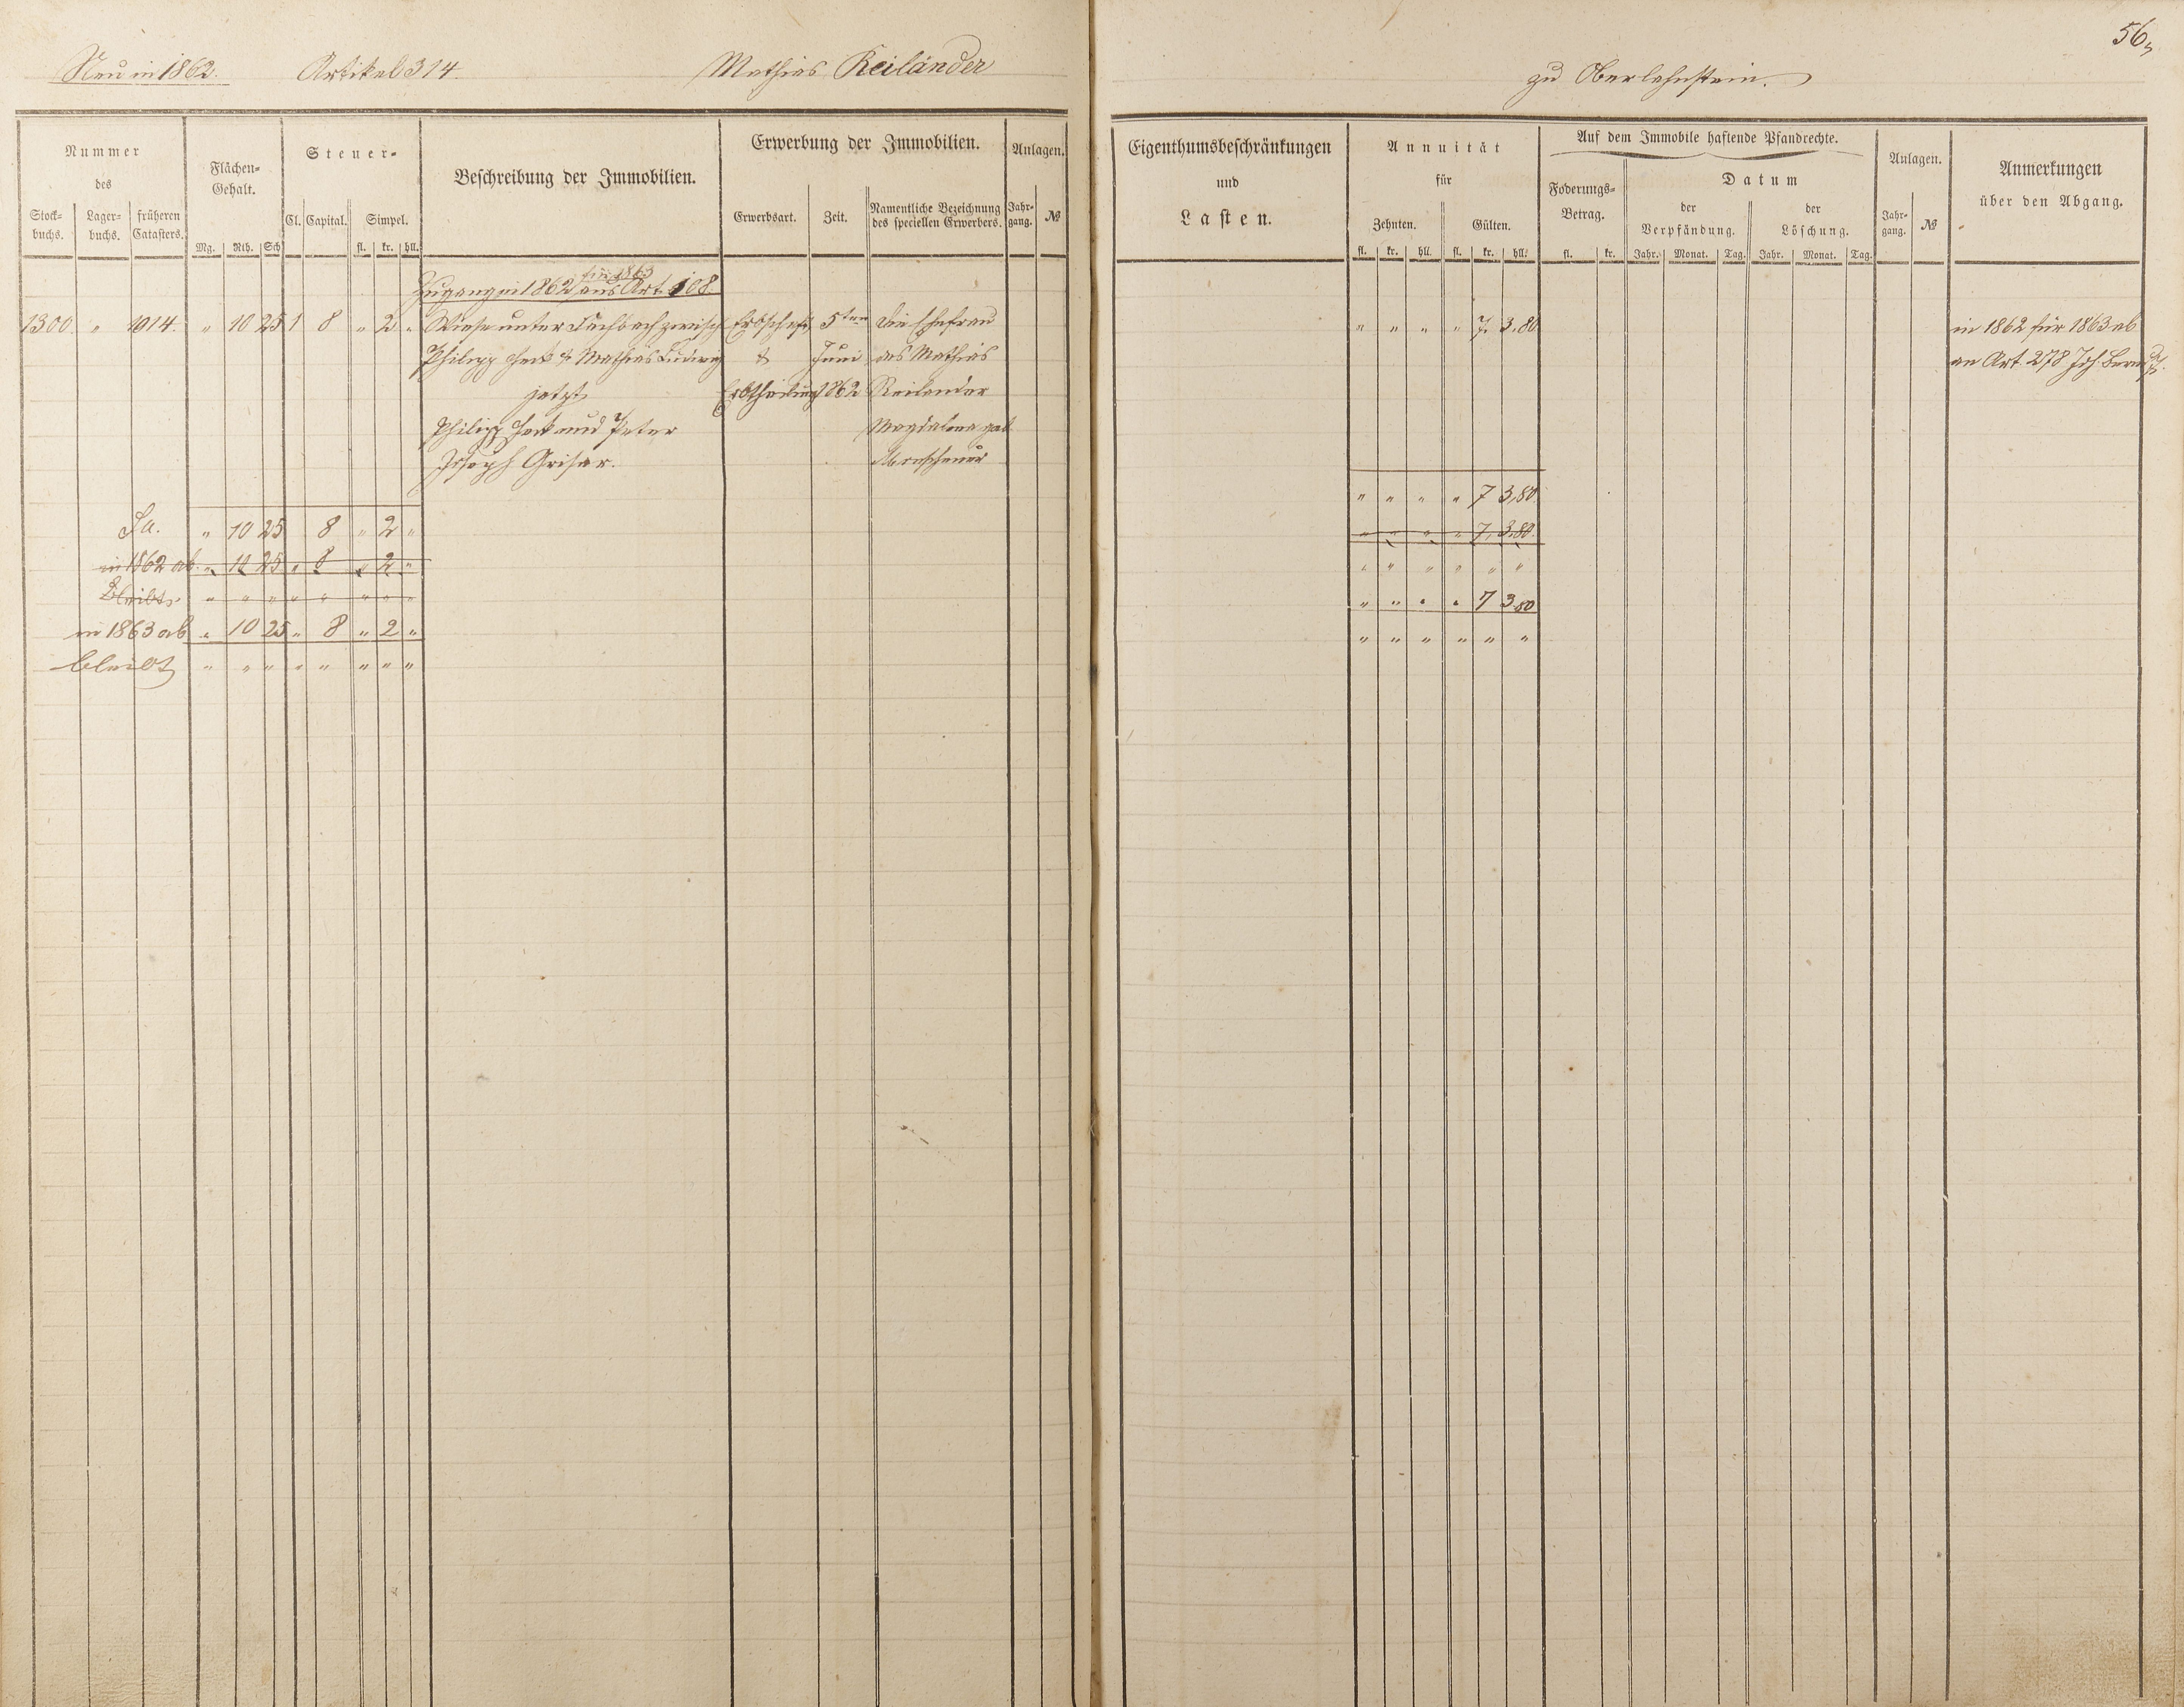 56,
Neu in 1862. Artikel 314. Mathias Reiländer zu Oberlahnstein.
Nummer des
Stockbuchs. Lagerbuchs. früheren Catasters.
Flächen-Gehalt.
Mg. Rth. Sch
Steuer-
Cl. Capital. Simpel.
fl. kr. hll.
Beschreibung der Immobilien.
Erwerbung der Immobilien.
Erwerbsart. Zeit. Namentliche Bezeichnung des speciellen Erwerbers.
Anlagen.
Jahrgang. №
Eigenthumsbeschränkungen
und
Lasten.
Annuität
für
Zehnten. Gülten.
fl. kr. hll. fl. kr. hll.
Auf dem Immobile haftende Pfandrechte.
Foderungs-Betrag.
fl. kr.
Datum
der Verpfändung. der Löschung.
Jahr. Monat. Tag. Jahr. Monat. Tag.
Anlagen.
Jahrgang. №
Anmerkungen
über den Abgang.
für 1863
Zugang in 1862 aus Art. 108
1300. " 1014. " 10 25 1 8 " 2 " Wiese unter zwisch Erbschaft 5ten die Ehefrau " " " " 7. 3.80 in 1862 für 1863 ab
Philipp Heck & Mathias Ludwig & Juni des Mathias an Art. 278 Joh.
jetzt Erbtheilung 1862 Reilender
Philipp Heck und Peter Magdalena geb.
Joseph Griser.
" " " " 7 3,80
Sa. " 10 25 8 " 2 " " " " " 7, 3,80.
in 1862 ab. " 10 25 " 8 " 2 " " " " " " "
Bleibt. " " " " " " " " " " " " 7 3.80
in 1863 ab " 10 25 " 8 " 2 " " " " " " "
bleibt " " " " " " " "